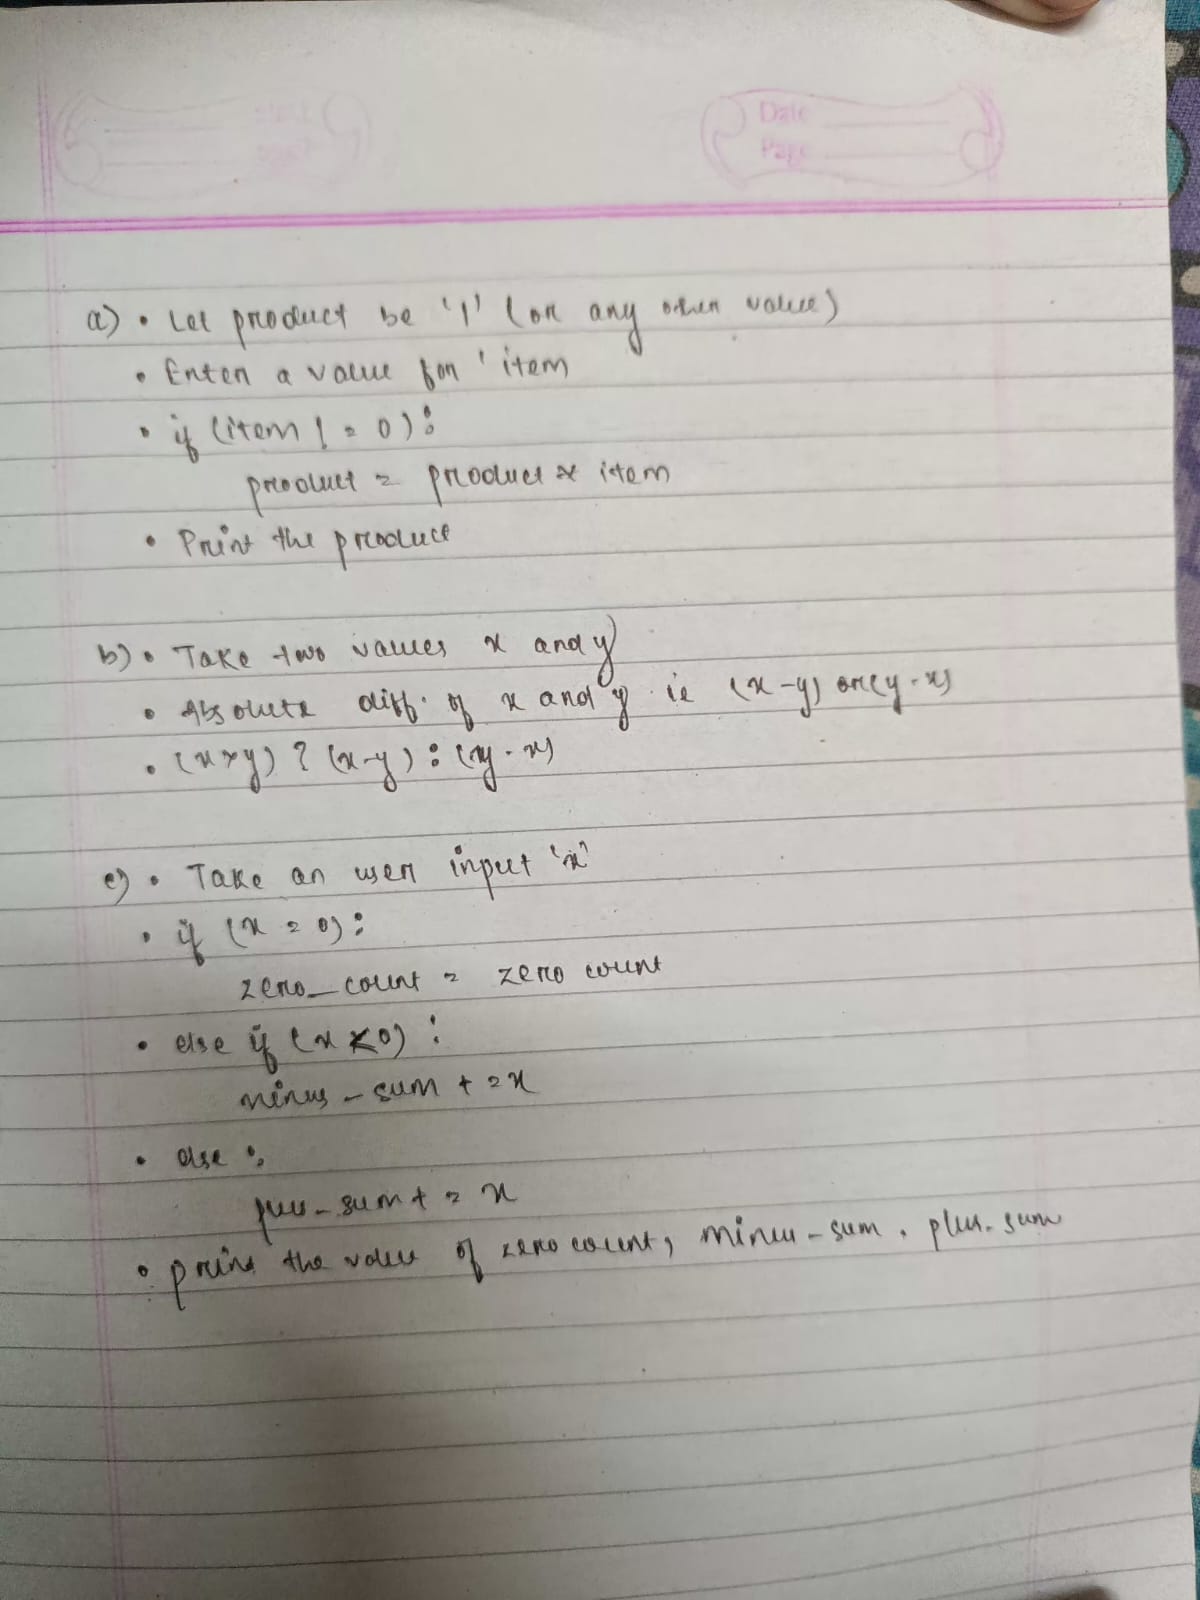 Date
Page
a) • Let product be '1' (or any other value)
• Enter a value for 'item
• if (item != 0):
product = product * item
• Print the product
b) • Take two values x and y
• Absolute diff. of x and y ie (x-y) or (y-x)
• (x>y) ? (x-y) : (y-x)
c) • Take an user input 'x'
• if (x = 0):
zero_count = zero count
• else if (x<0) :
minus_sum += x
• else :
plus_sum += x
• print the value of zero count, minus-sum, plus-sum